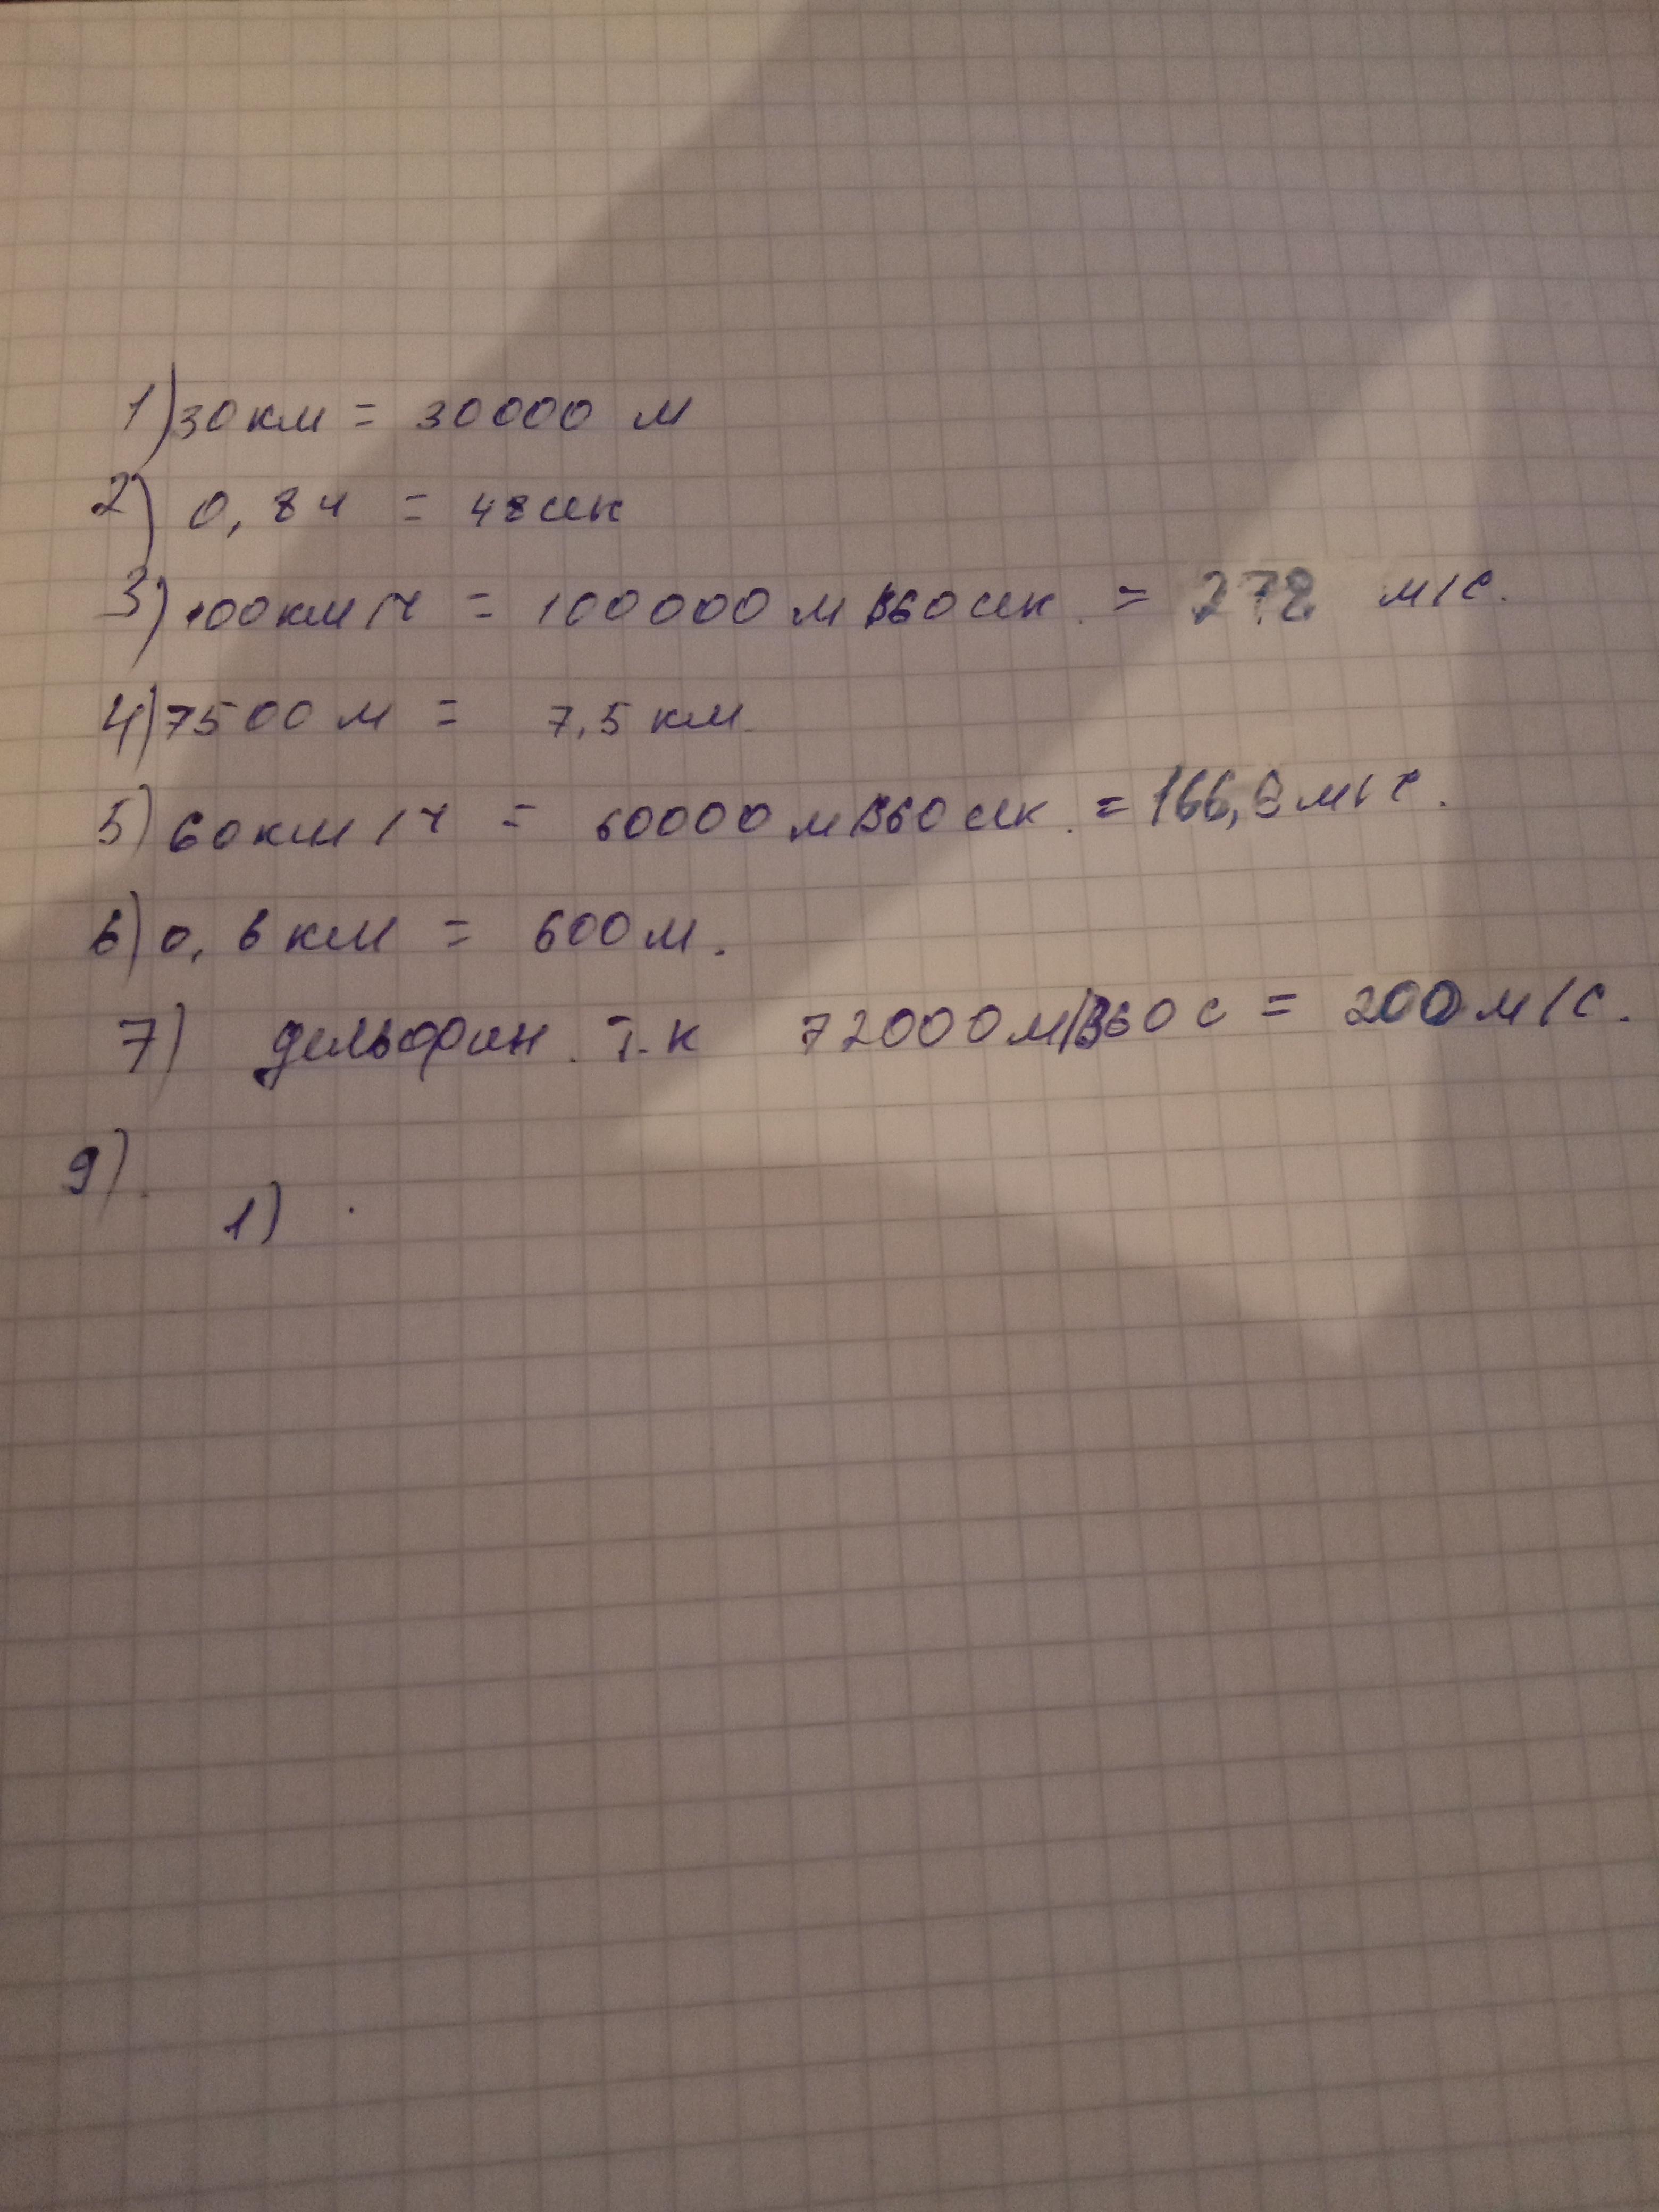 1) 30 км = 30000 м
2) 0,8 ч = 48 сек
3) 100 км/ч = 100000 м/360 сек. = 278 м/с.
4) 7500 м = 7,5 км.
5) 60 км/ч = 60000 м/360 сек. = 166,6 м/с.
6) 0,6 км = 600 м.
7) дельфин. т.к 72000 м/360 с = 200 м/с.
9).
1) .